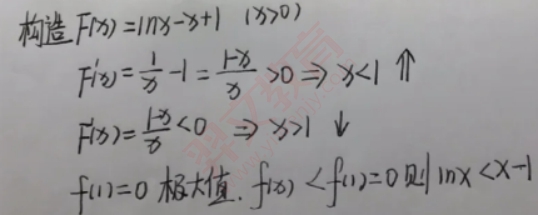 构造 F(x)=lnx-x+1 (x>0)
F'(x)=\frac{1}{x}-1=\frac{1-x}{x}>0⇒x<1 ↑
F'(x)=\frac{1-x}{x}<0 ⇒x>1 ↓
f(1)=0 极大值. f(x)<f(1)=0 则 lnx<x-1